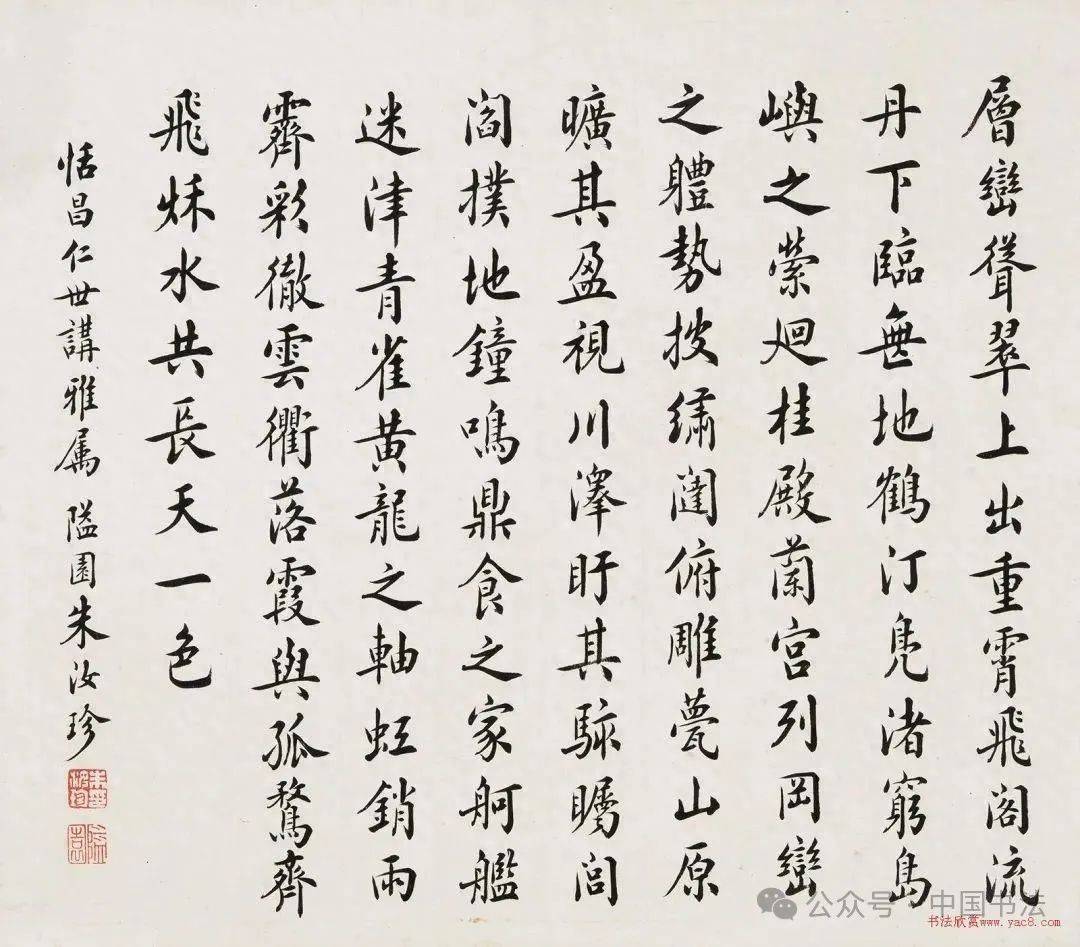 層巒聳翠上出重霄飛閣流
丹下臨無地鶴汀凫渚窮島
嶼之縈廻桂殿蘭宮列岡巒
之體勢披繡闥俯雕甍山原
曠其盈視川澤盱其駭矚閭
閻撲地鐘鳴鼎食之家舸艦
迷津青雀黃龍之軸虹銷雨
霽彩徹雲衢落霞與孤鶩齊
飛秌水共長天一色
恬昌仁世講雅属 隘園朱汝珍
公众号·中国书法
书法欣赏www.yac8.com